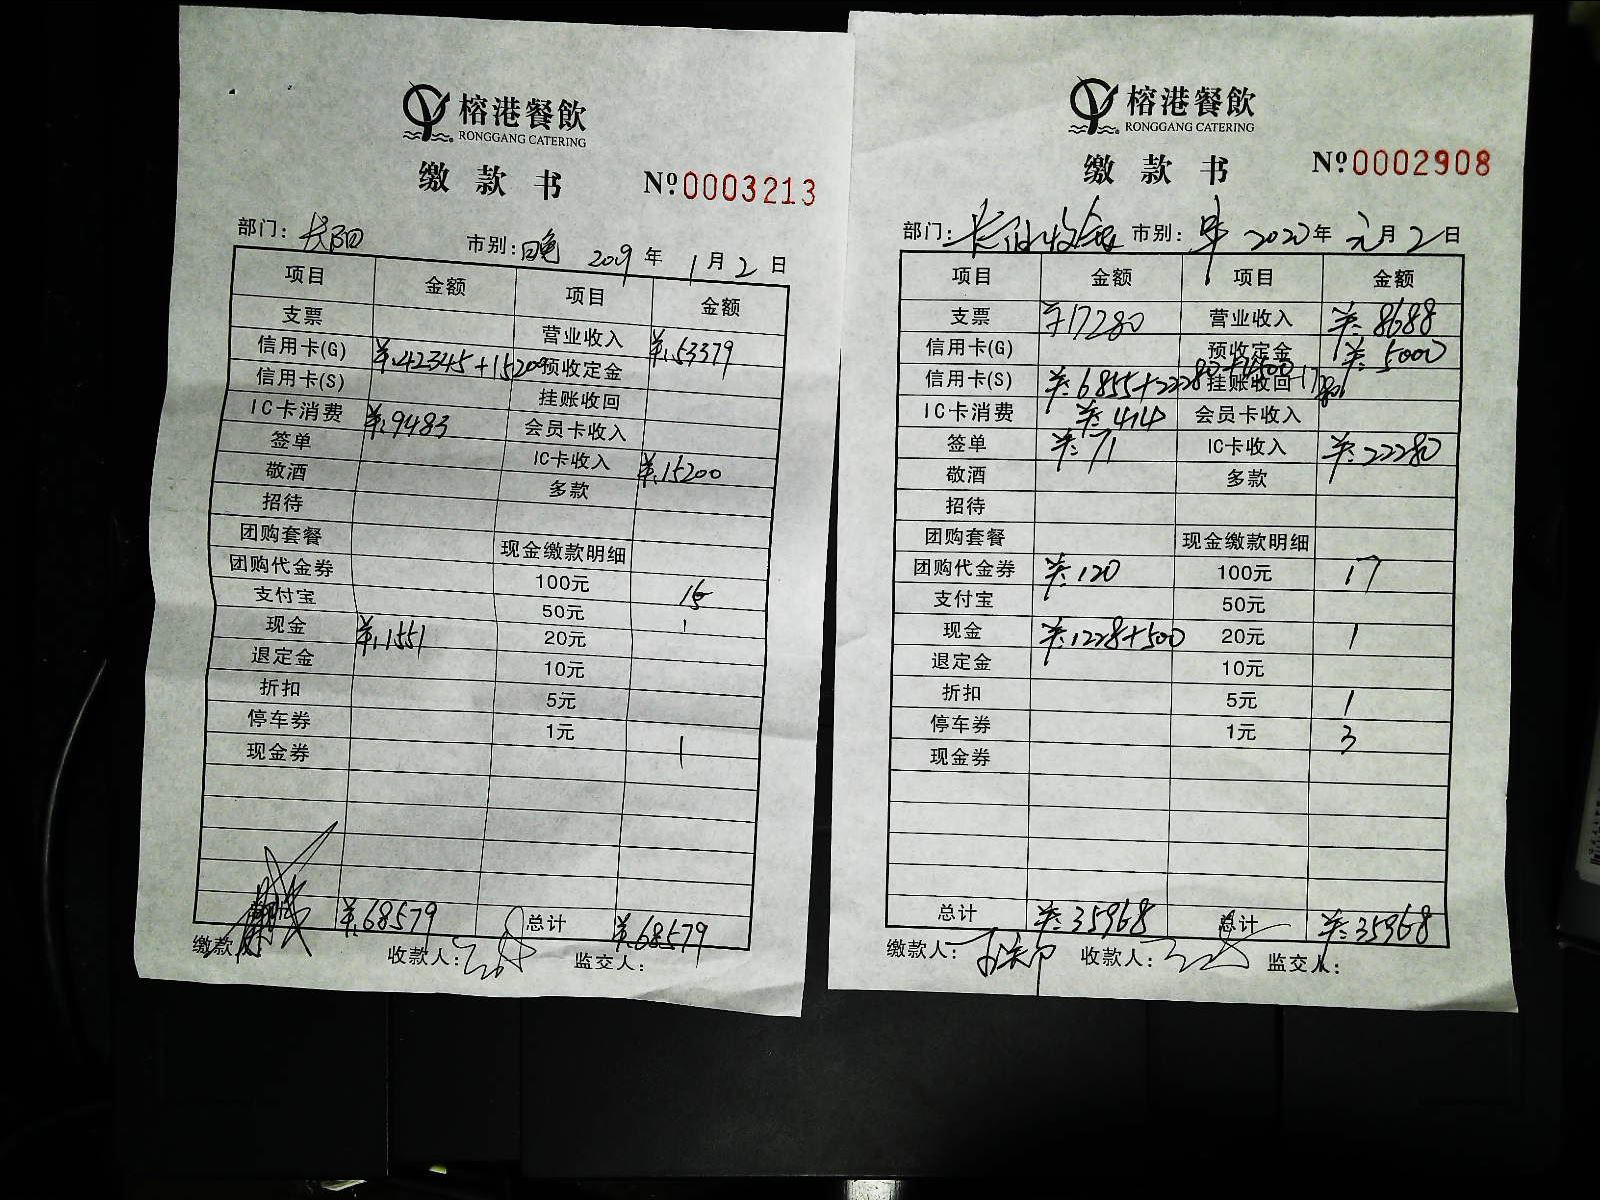 榕港餐飲
RONGGANG CATERING
缴款书
№0003213
部门: 长阳 市别: 晚 2019年1月2日
项目 金额 项目 金额
支票 营业收入 ¥:53379
信用卡(G) ¥:42345+15200 预收定金
信用卡(S) 挂账收回
IC卡消费 ¥:9483 会员卡收入
签单 IC卡收入 ¥:15200
敬酒 多款
招待
团购套餐 现金缴款明细
团购代金券 100元 15
支付宝 50元 1
现金 ¥:1551 20元
退定金 10元
折扣 5元
停车券 1元 1
现金券
¥:68579 总计 ¥:68579
缴款 收款人: 监交人:
榕港餐飲
RONGGANG CATERING
缴款书
№0002908
部门: 市别: 早 2020年元月2日
项目 金额 项目 金额
支票 ¥17280 营业收入 ¥:8688
信用卡(G) 预收定金 ¥:5000
信用卡(S) ¥:6855+22280+4500-17280 挂账收回
IC卡消费 ¥:414 会员卡收入
签单 ¥:71 IC卡收入 ¥:22280
敬酒 多款
招待
团购套餐 现金缴款明细
团购代金券 ¥:120 100元 17
支付宝 50元
现金 ¥:1228+500 20元 1
退定金 10元
折扣 5元 1
停车券 1元 3
现金券
总计 ¥:35968 总计 ¥:35968
缴款人: 收款人: 监交人: